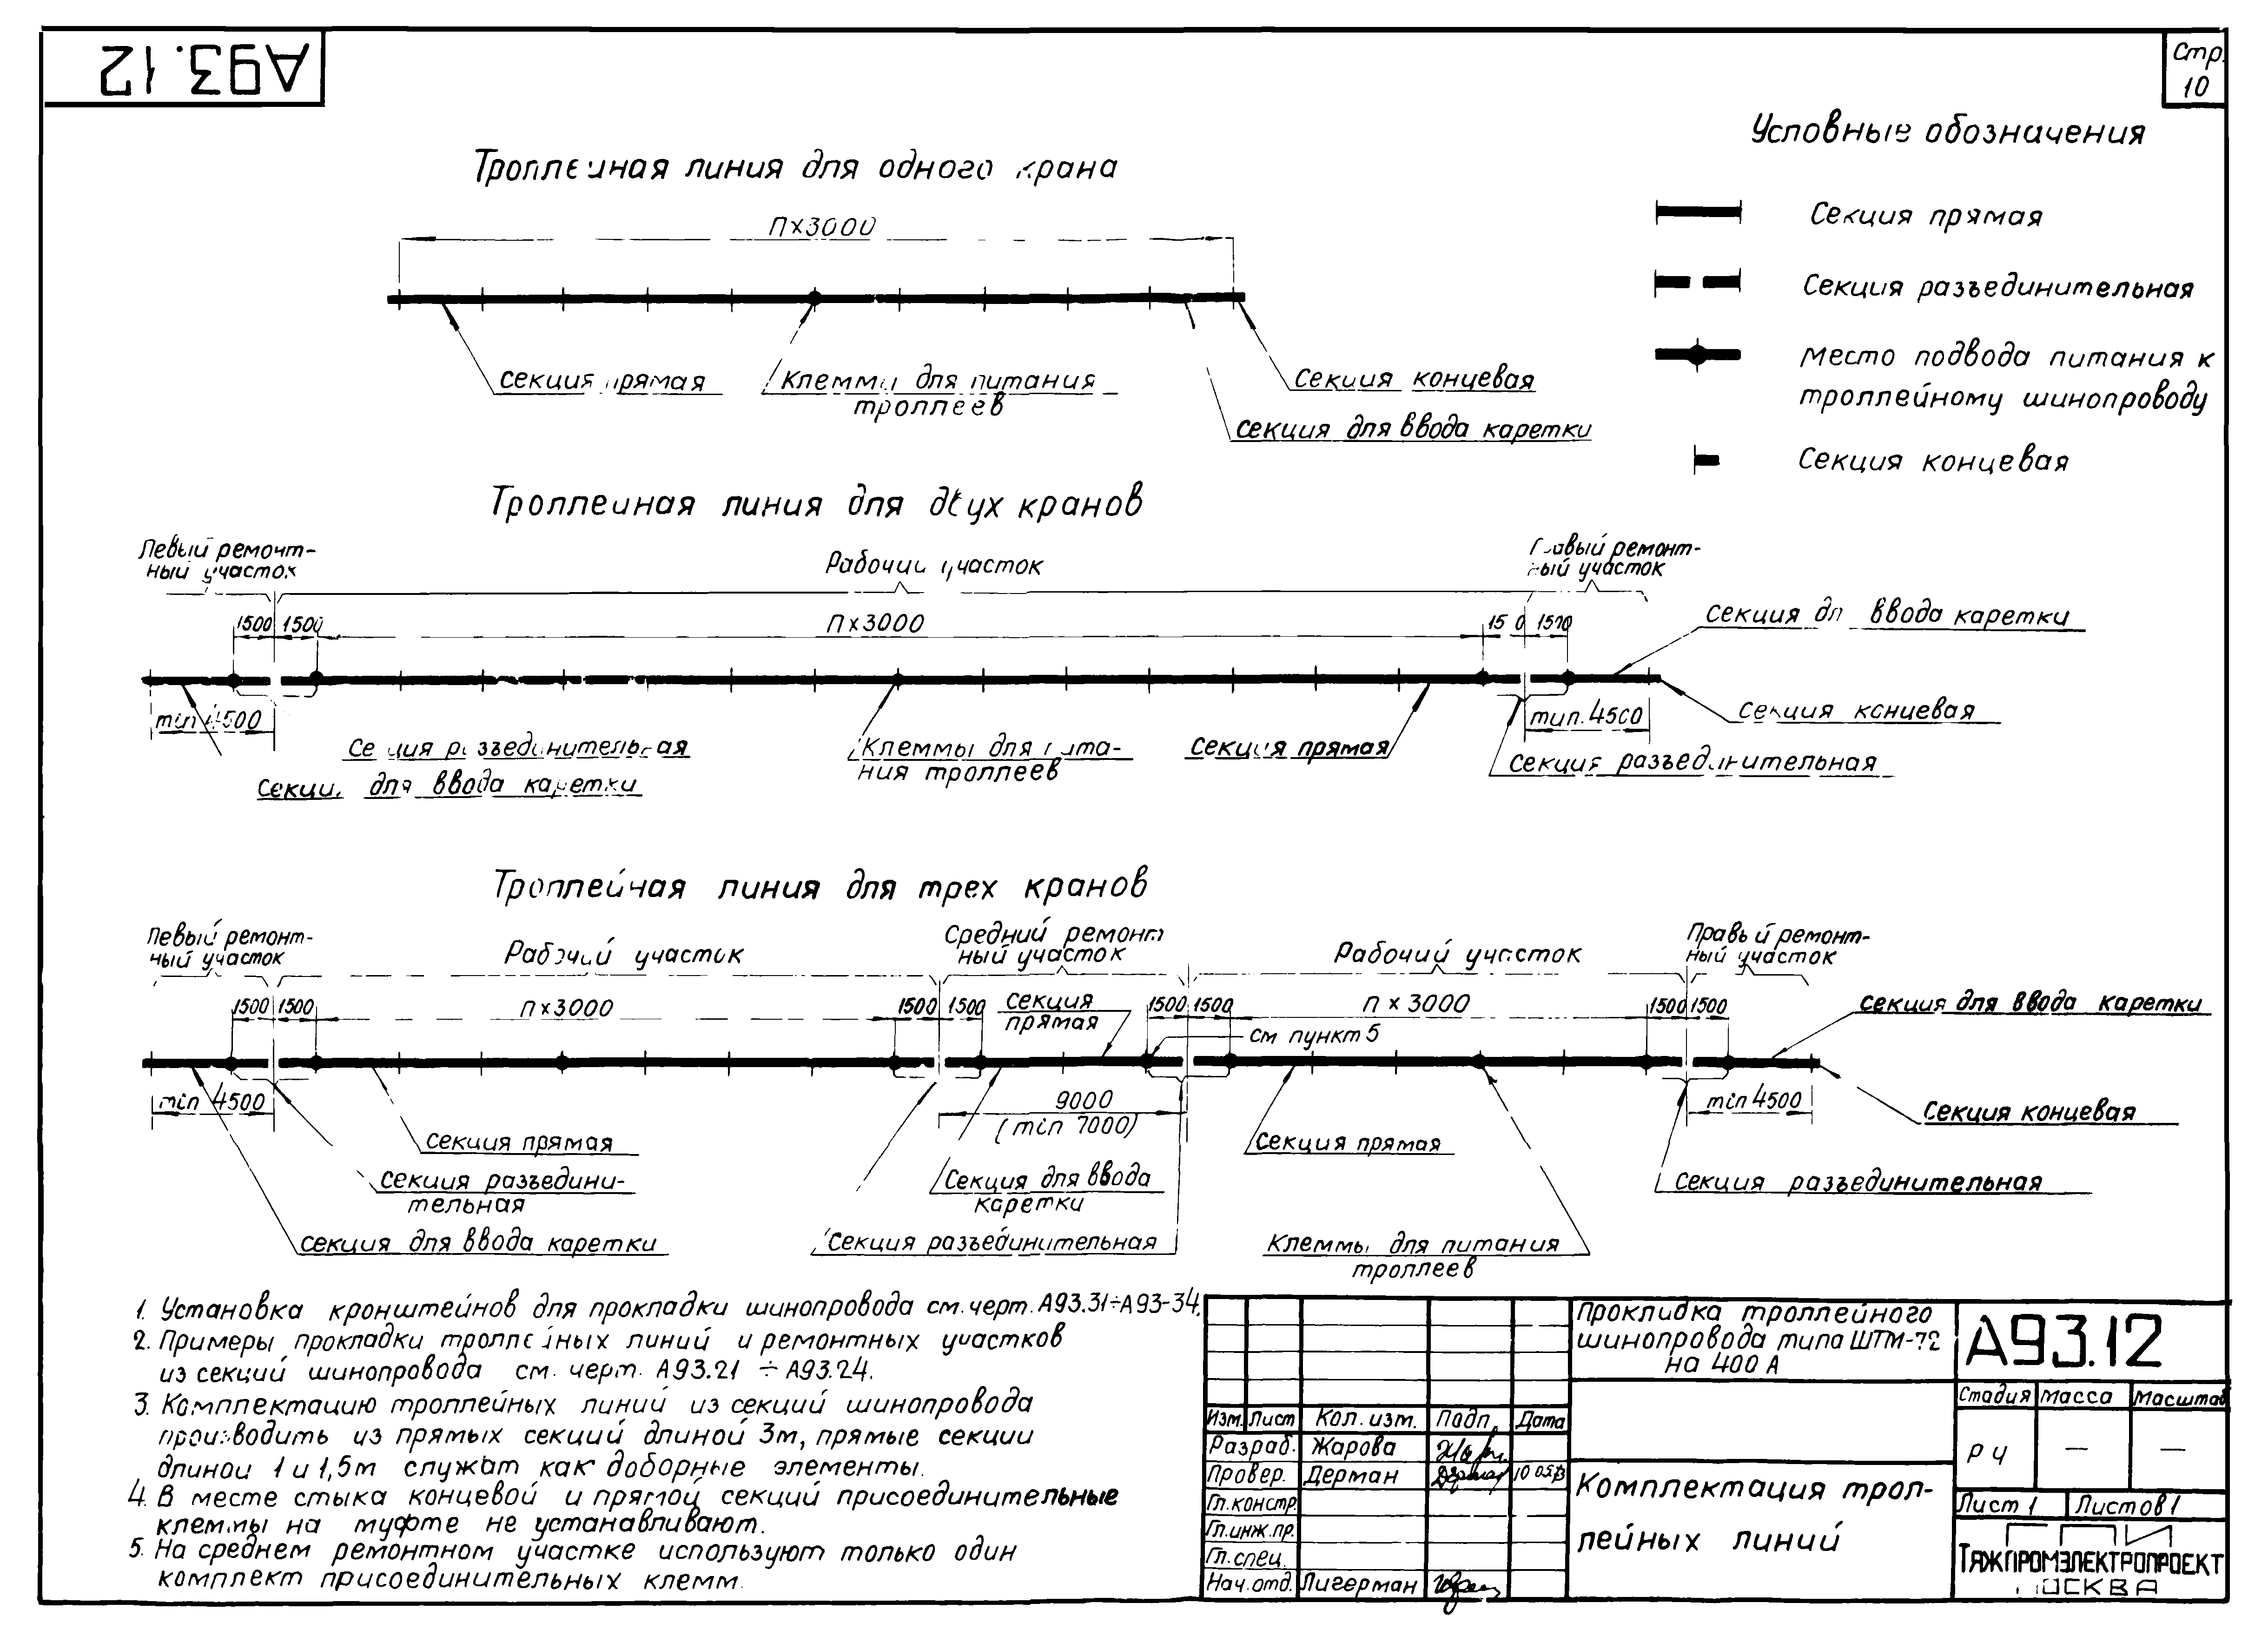 А93.12
Стр.
10
Условные обозначения
Секция прямая
Секция разъединительная
Место подвода питания к
троллейному шинопроводу
Секция концевая
Троллейная линия для одного крана
п×3000
секция прямая
Клеммы для питания
троллеев
Секция концевая
секция для ввода каретки
Троллейная линия для двух кранов
Левый ремонт-
ный участок
Рабочий участок
Правый ремонт-
ный участок
1500
1500
п×3000
1500
1500
секция для ввода каретки
min 4500
min. 4500
секция концевая
Секция разъединительная
Клеммы для пита-
ния троллеев
секция прямая
секция разъединительная
секция для ввода каретки
Троллейная линия для трех кранов
Левый ремонт-
ный участок
Рабочий участок
Средний ремонт
ный участок
Рабочий участок
Правый ремонт-
ный участок
1500
1500
п×3000
1500
1500
секция
прямая
1500
1500
п × 3000
1500
1500
секция для ввода каретки
см пункт 5
min 4500
9000
(min 7000)
min 4500
секция концевая
секция прямая
секция прямая
секция разъедини-
тельная
Секция для ввода
каретки
секция разъединительная
секция для ввода каретки
секция разъединительная
Клеммы для питания
троллеев
1. Установка кронштейнов для прокладки шинопровода см. черт. А93.31÷А93-34.
2. Примеры прокладки троллейных линий и ремонтных участков
из секций шинопровода см. черт. А93.21 ÷ А93.24.
3. Комплектацию троллейных линий из секций шинопровода
производить из прямых секций длиной 3м, прямые секции
длиной 1 и 1,5м служат как доборные элементы.
4. В месте стыка концевой и прямой секций присоединительные
клеммы на муфте не устанавливают.
5. На среднем ремонтном участке используют только один
комплект присоединительных клемм.
Прокладка троллейного
шинопровода типа ШТМ-72
на 400 А
А93.12
Стадия Масса Масштаб
РЧ — —
Изм. Лист Кол. изм. Подп. Дата
Разраб. Жарова
Провер. Дерман
Гл.констр.
Гл.инж.пр.
Гл.спец.
Нач.отд. Лигерман
Комплектация трол-
лейных линий
Лист 1 Листов 1
ТЯЖПРОМЭЛЕКТРОПРОЕКТ
МОСКВА